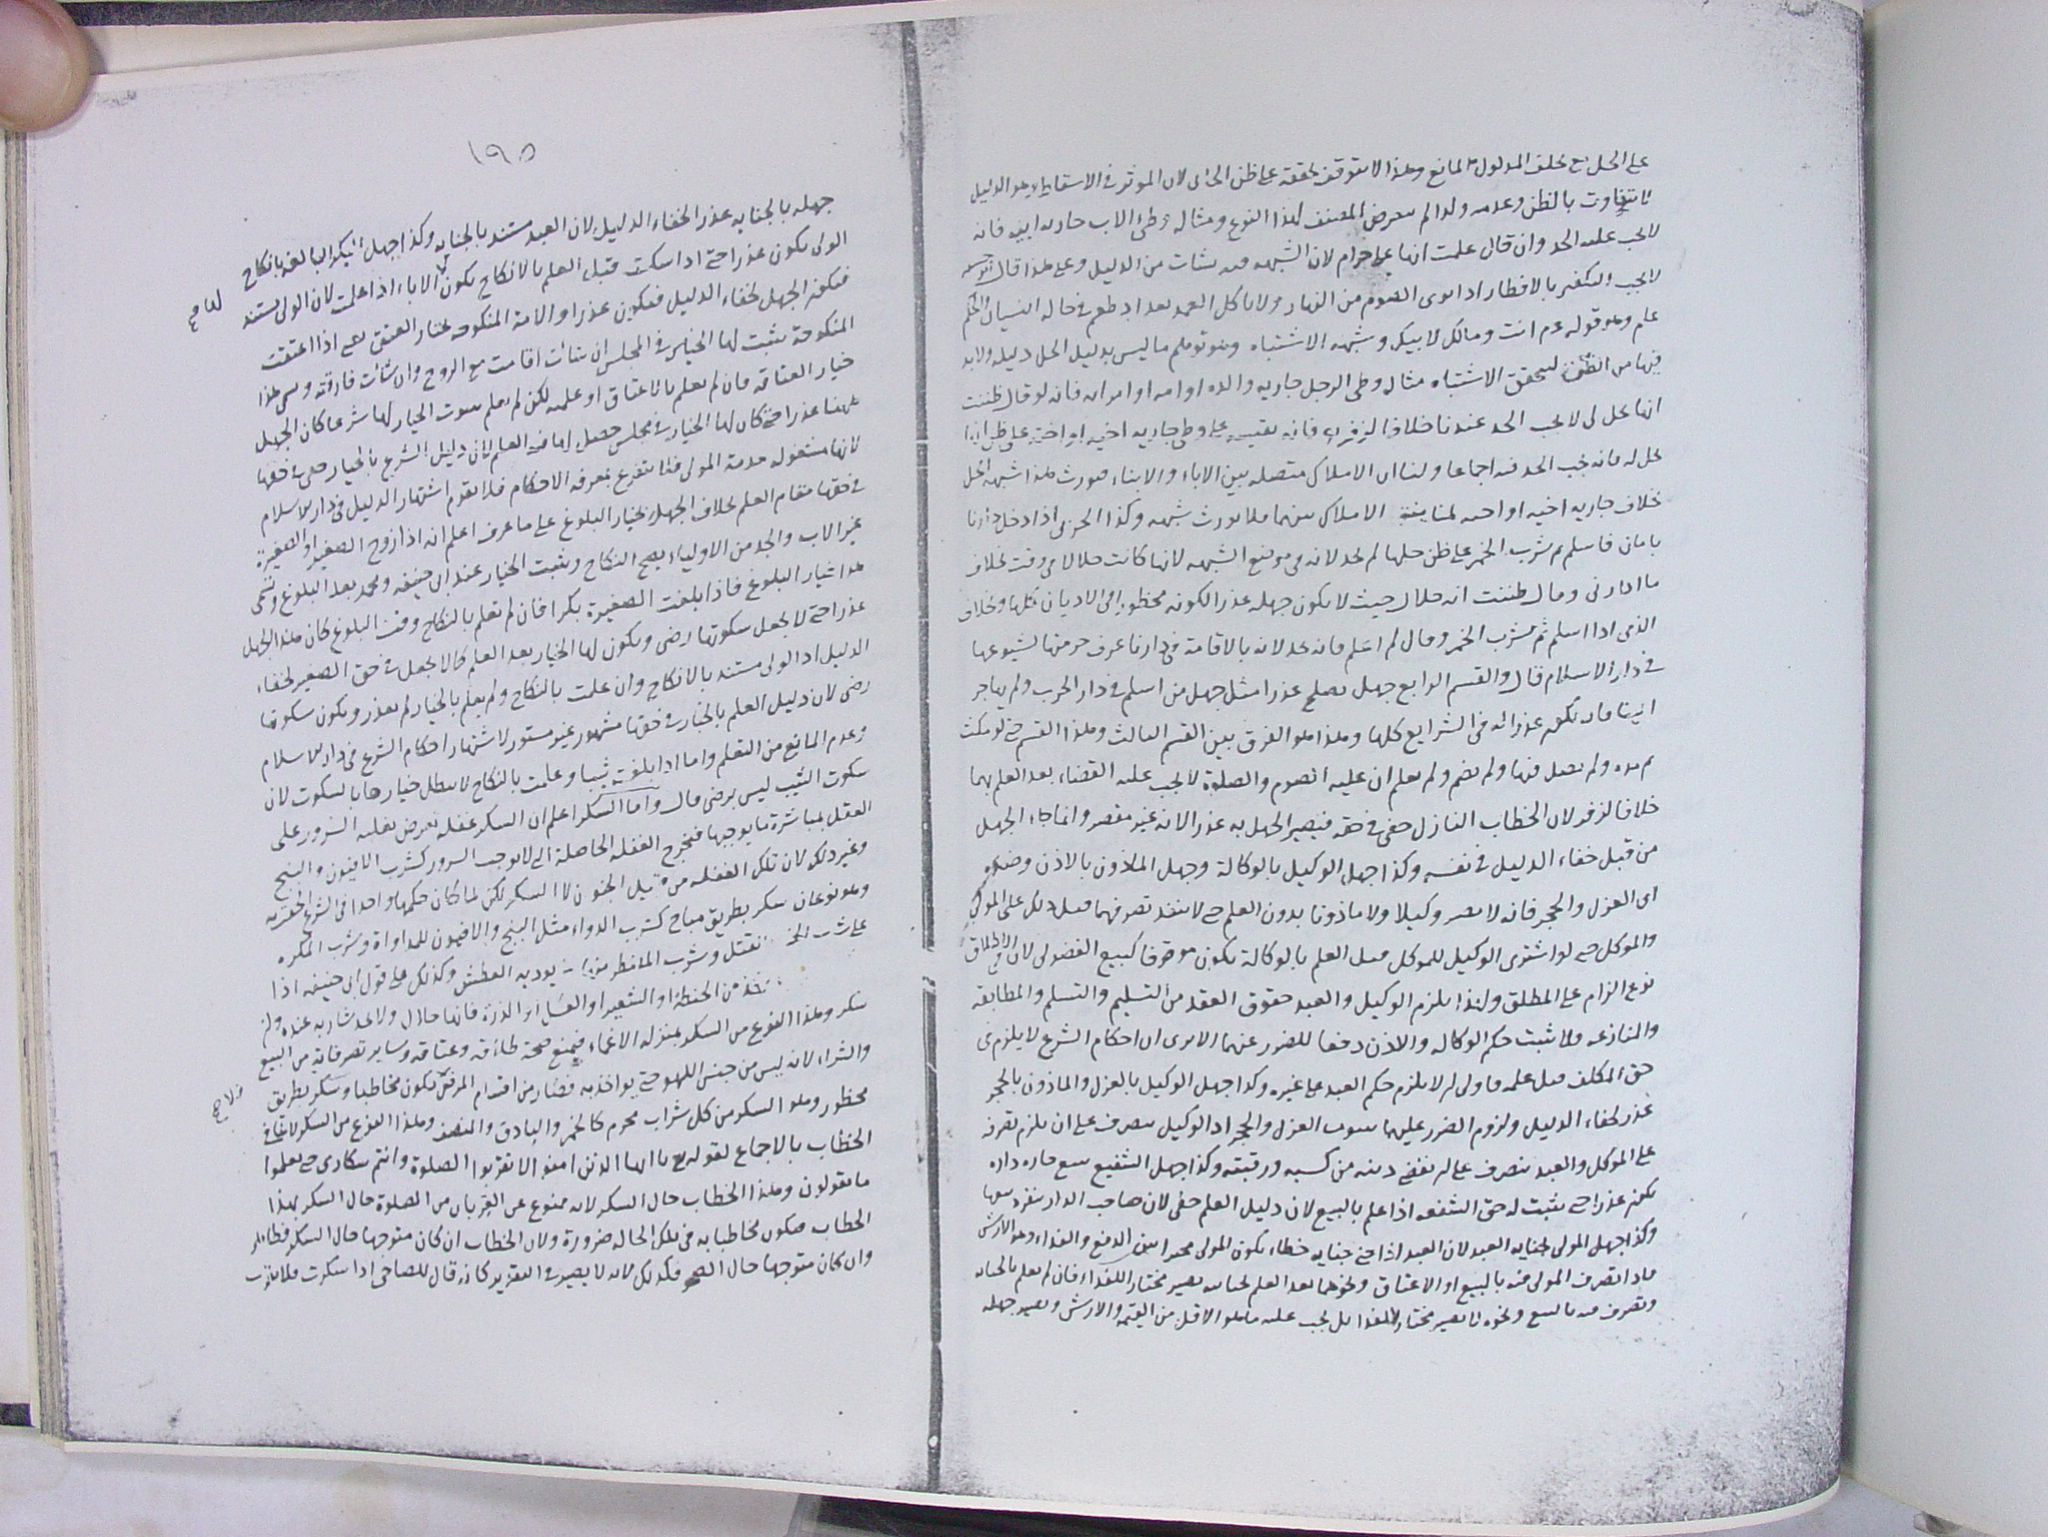 على الحل مع تخلف المدلول لمانع وهذا لا يتوقف تحققه على ظن الجاني لان الموثر في الاسقاط هو الدليل
لا يتفاوت بالظن وعدمه ولذا لم يتعرض المصنف لهذا النوع ومثاله وطئ الاب جارية ابنه فانه
لا يجب عليه الحد وان قال علمت انها على حرام لان الشبهة فيه نشات من الدليل وعلى هذا قال
لا يجب التكفير بالافطار اذا نوى الصوم من النهار ولا باكل العمد بعد اذ طعم في حالة النسيان
عام وهو قوله عم انت ومالك لابيك وشبهة الاشتباه وهو توهم ما ليس بدليل الحل دليله ولا بد
فيها من الظن ليتحقق الاشتباه مثاله وطى الرجل جارية والده او امه او امراته فانه لو قال ظننت
انها تحل لي لا يجب الحد عندنا خلافا لزفر فانه يقيسه على وطى جارية اخيه او اخته على ظن انها
تحل له فانه يجب الحد فيه اجماعا ولنا ان الاملاك متصلة بين الاباء والابناء فيورث هذا شبهة الحل
بخلاف جارية اخيه او اخته لمباينة الاملاك بينهما فلا يورث شبهة وكذا الحربي اذا دخل دارنا
بامان فاسلم ثم شرب الخمر على ظن حلها لم يحد لانه في موضع الشبهة لانها كانت حلالا في وقت بخلاف
ما اذا زنى وقال ظننت انه حلال حيث لا يكون جهله عذرا لكونه محظورا في الاديان كلها وبخلاف
الذمي اذا اسلم ثم شرب الخمر وقال لم اعلم فانه يحد لانه بالاقامة في دارنا عرف حرمتها لشيوعها
في دار الاسلام قال والقسم الرابع جهل يصلح عذرا مثل جهل من اسلم في دار الحرب ولم يهاجر
الينا فانه يكون عذرا له في الشرايع كلها وهذا هو الفرق بين القسم الثالث وهذا القسم حتى لو مكث
ثم مده ولم يصل فيها ولم يصم ولم يعلم ان عليه الصوم والصلوة لا يجب عليه القضاء بعد العلم بهما
خلافا لزفر لان الخطاب النازل خفي في حقه فيصير الجهل به عذرا لانه غير مقصر وانما جاء الجهل
من قبل خفاء الدليل في نفسه وكذا جهل الوكيل بالوكالة وجهل الماذون بالاذن وضده
اى العزل والحجر فانه لا يصير وكيلا ولا ماذونا بدون العلم حتى لا ينفذ تصرفهما قبل ذلك على المولى
والموكل حتى لو اشترى الوكيل للموكل قبل العلم بالوكالة يكون موقوفا كبيع الفضولي لان في الاطلاق
نوع الزام على المطلق ولهذا يلزم الوكيل والعبد حقوق العقد من التسليم والتسلم والمطالبة
والمنازعة فلا يثبت حكم الوكالة والاذن دفعا للضرر عنهما الا يرى ان احكام الشرع لا يلزم في
حق المكلف قبل علمه فاولى ان لا يلزم حكم العبد على غيره وكذا جهل الوكيل بالعزل والماذون بالحجر
عذر لخفاء الدليل ولزوم الضرر عليهما بثبوت العزل والحجر اذ الوكيل يتصرف على ان يلزم تصرفه
على الموكل والعبد يتصرف على ان يقضى دينه من كسبه ورقبته وكذا جهل الشفيع ببيع جاره داره
يكون عذرا حتى يثبت له حق الشفعة اذا علم بالبيع لان دليل العلم خفي لان صاحب الدار ينفرد ببيعها
وكذا جهل المولى بجناية العبد لان العبد اذا جنى جناية خطاء يكون المولى مخيرا بين الدفع والفداء وهو الارش
فاذا تصرف المولى فيه بالبيع او الاعتاق ونحوهما بعد العلم بجنايته يصير مختارا للفداء فان لم يعلم بالجناية
وتصرف فيه بالبيع ونحوه لا يصير مختارا للفداء بل يجب عليه ما هو الاقل من القيمة والارش ويصير جهله
١٩٥
جهله بالجناية عذرا لخفاء الدليل لان العبد مستبد بالجناية وكذا جهل البكر البالغة بانكاح
الولى يكون عذرا حتى اذا سكتت قبل العلم بالانكاح يكون لها الاباء اذا علمت لان الولى مستبد
فيكون الجهل لخفاء الدليل فيكون عذرا والامة المنكوحة بخيار العتق يعنى اذا اعتقت
المنكوحة يثبت لها الخيار في المجلس ان شائت اقامت مع الزوج وان شائت فارقته ويسمى هذا
خيار العتاقة فان لم يعلم بالاعتاق او علمت لكن لم يعلم بثبوت الخيار لها شرعا كان الجهل
منها عذرا حتى كان لها الخيار في مجلس حصل لها فيه العلم لان دليل الشرع بالخيار خفى في حقها
لانها مشغولة بخدمة المولى فلا يتفرغ لمعرفة الاحكام فلا يقوم اشتهار الدليل في دار الاسلام
في حقها مقام العلم بخلاف الجهل بخيار البلوغ على ما عرف اعلم انه اذا زوج الصغير او الصغيرة
غير الاب والجد من الاولياء يصح النكاح ويثبت الخيار عند ابي حنيفة ومحمد بعد البلوغ ويسمى
هذا خيار البلوغ فاذا بلغت الصغيرة بكرا فان لم تعلم بالنكاح وقت البلوغ كان هذا الجهل
عذرا حتى لا يجعل سكوتها رضى ويكون لها الخيار بعد العلم كما لا يجعل في حق الصغير لخفاء
الدليل اذ الولى مستبد بالانكاح وان علمت بالنكاح ولم يعلم بالخيار لم يعذر ويكون سكوتها
رضى لان دليل العلم بالخيار في حقها مشهور غير مستور لاشتهار احكام الشرع في دار الاسلام
وعدم المانع من التعلم واما اذا بلغت ثيبا وعلمت بالنكاح لا يبطل خيارها بالسكوت لان
سكوت الثيب ليس برضى قال واما السكر اعلم ان السكر غفلة تعرض بغلبة السرور على
العقل بمباشرة ما يوجبها فيخرج الغفلة الحاصلة التى لا توجب السرور كشرب الافيون والبنج
وغير ذلك لان تلك الغفلة من قبيل الجنون لا السكر لكن لما كان حكمها واحدا في الشرع الحقت به
وهو نوعان سكر بطريق مباح كشرب الدواء مثل البنج والافيون للمداواة وشرب المكره
على شرب الخمر بالقتل وشرب المضطر منها ما يرد به العطش وكذلك على قول ابي حنيفة اذا
شرب ما يتخذ من الحنطة او الشعير او العسل او الذرة فانها حلال ولا يحد شاربه عنده وان
سكر وهذا النوع من السكر بمنزلة الاغماء فيمنع صحة طلاقه وعتاقه وساير تصرفاته من البيع
والشراء لانه ليس من جنس اللهو حتى يواخذ به فصار من اقسام المرض فلا يكون مخاطبا وسكر بطريق
محظور وهو السكر من كل شراب محرم كالخمر والباذق والمنصف وهذا النوع من السكر لا ينافي
الخطاب بالاجماع لقوله تع يا ايها الذين امنوا لا تقربوا الصلوة وانتم سكارى حتى تعلموا
ما تقولون وهذا الخطاب حال السكر لانه ممنوع عن القربان من الصلوة حال السكر بهذا
الخطاب فيكون مخاطبا به في تلك الحالة ضرورة ولان الخطاب ان كان متوجها حال السكر فظاهر
وان كان متوجها حال الصحو فكذلك لانه لا يصير في التقدير كانه قال للصاحى اذا سكرت فلا تقرب